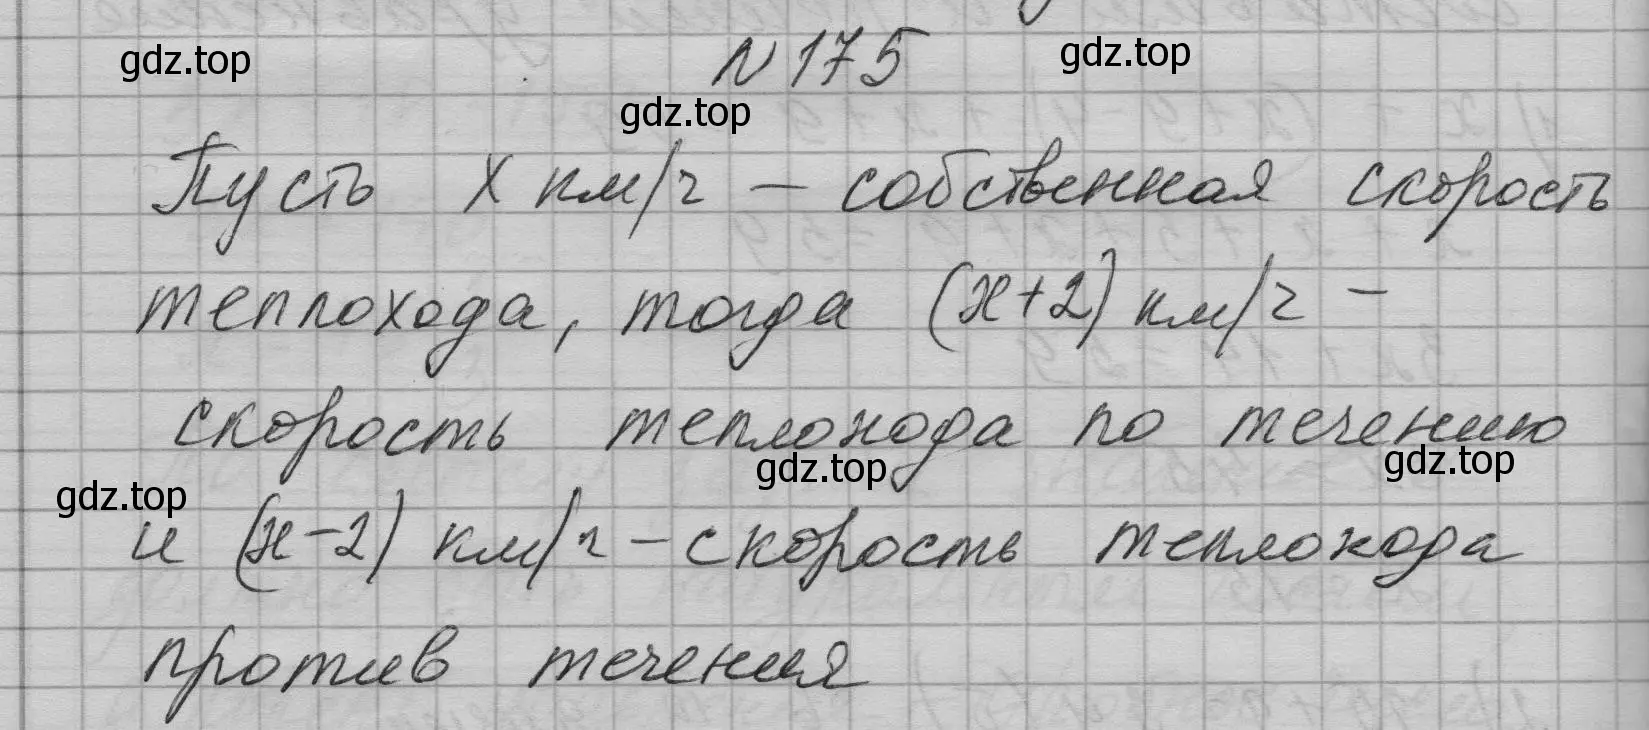 gdz.top
N 175
gdz.top
gdz.top
Пусть x км/ч – собственная скорость
теплохода, тогда (x+2) км/ч –
скорость теплохода по течению
gdz.top
gdz.top
gdz.top
и (x-2) км/ч – скорость теплохода
против течения